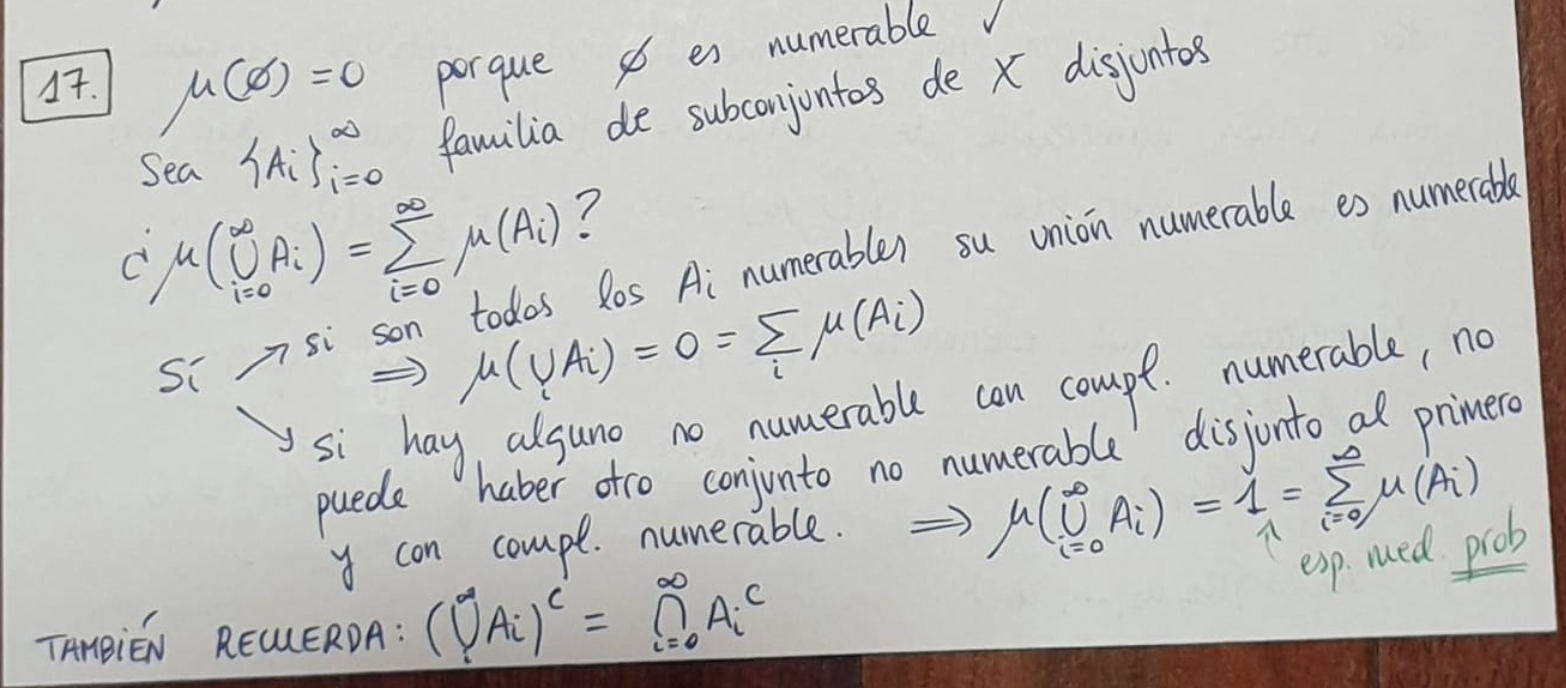 17. μ(∅) = 0 porque ∅ es numerable ✓
Sea {Ai}_{i=0}^∞ familia de subconjuntos de X disjuntos
¿ μ(⋃_{i=0}^∞ Ai) = ∑_{i=0}^∞ μ(Ai)?
Sí ↗ si son todos los Ai numerables su unión numerable es numerable
⟹ μ(⋃_i Ai) = 0 = ∑_i μ(Ai)
↘ si hay alguno no numerable con compl. numerable, no
puede haber otro conjunto no numerable disjunto al primero
y con compl. numerable. ⟹ μ(⋃_{i=0}^∞ Ai) = 1 = ∑_{i=0}^∞ μ(Ai)
↑ esp. med. prob
TAMBIÉN RECUERDA: (⋃_i^∞ Ai)^c = ⋂_{i=0}^∞ Ai^c